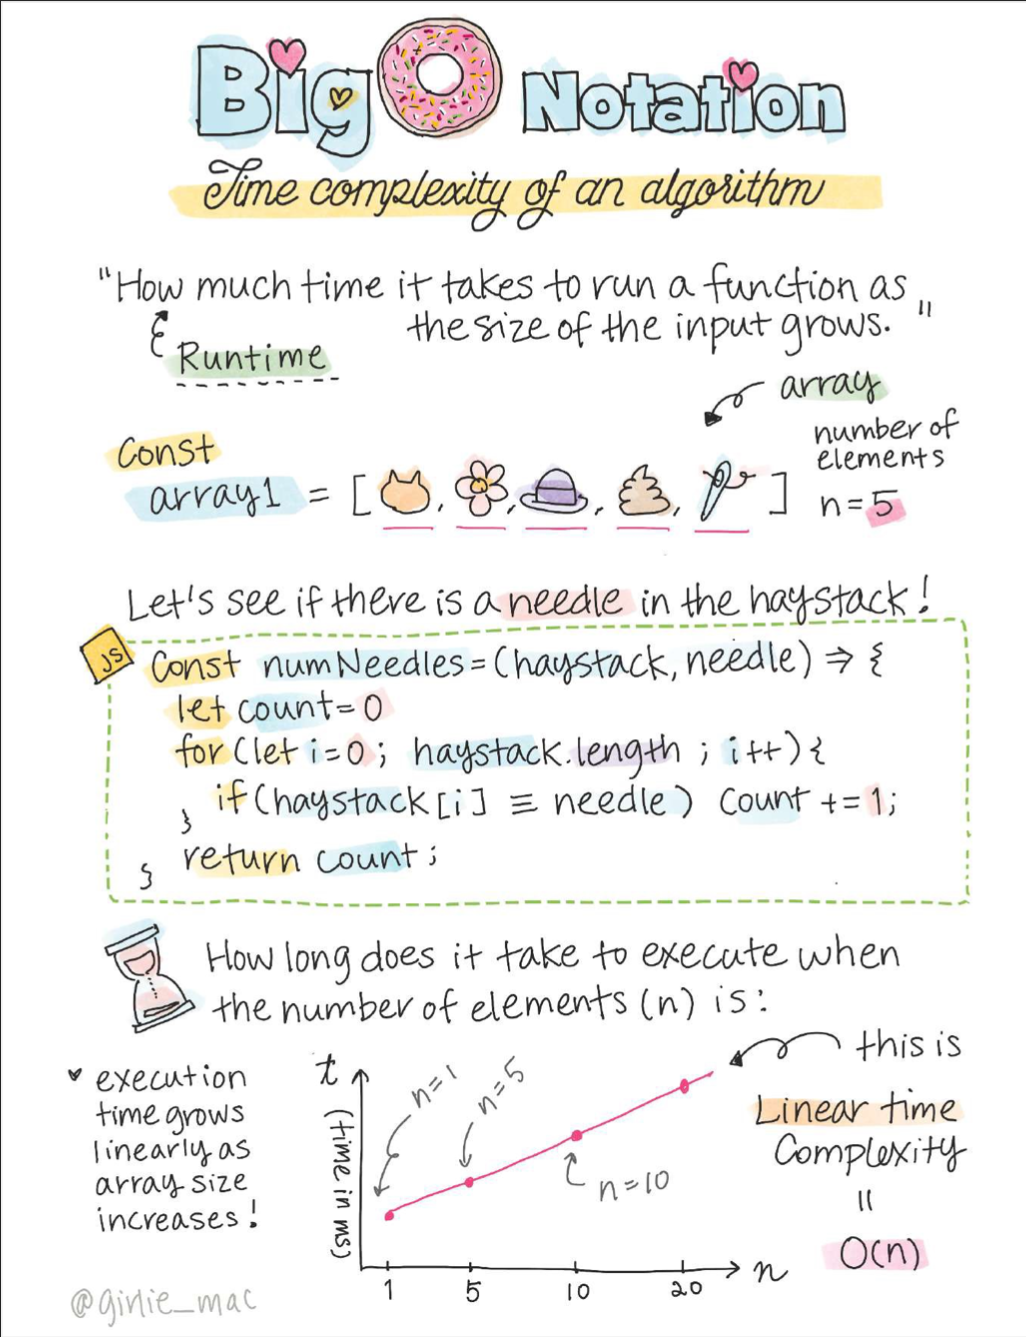 Big O Notation
Time complexity of an algorithm
"How much time it takes to run a function as
the size of the input grows."
Runtime
array
number of
elements
n=5
Const
array1 = [ , , , , ]
Let's see if there is a needle in the haystack!
JS
Const numNeedles = (haystack, needle) => {
let count = 0
for (let i=0 ; haystack.length ; i++) {
if (haystack[i] ≡ needle) Count += 1;
}
return count;
}
How long does it take to execute when
the number of elements (n) is:
execution
time grows
linearly as
array size
increases!
t
(time in ms)
n=1
n=5
n=10
1 5 10 20
n
this is
Linear time
Complexity
=
O(n)
@girlie_mac